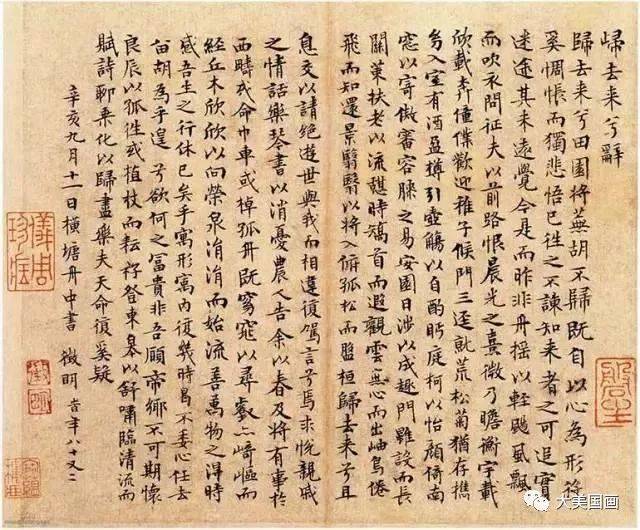 歸去来兮辭
歸去来兮田園將蕪胡不歸既自以心為形役
奚惆悵而獨悲悟已往之不諫知来者之可追實
迷途其未遠覺今是而昨非舟摇以軽颺風飄
而吹衣問征夫以前路恨晨光之熹微乃瞻衡宇載
欣載奔僮僕歡迎稚子候門三逕就荒松菊猶存携
幼入室有酒盈樽引壺觴以自酌眄庭柯以怡顔倚南
窓以寄傲審容膝之易安園日涉以成趣門雖設而長
關策扶老以流憩時矯首而遐觀雲無心而出岫鳥倦
飛而知還景翳翳以將入俯孤松而盤桓歸去来兮且
息交以請絶遊世與我而相違復駕言兮焉求悦親戚
之情話樂琴書以消憂農人告余以春及將有事於
西疇或命巾車或棹孤舟既窈窕以尋壑亦崎嶇而
經丘木欣欣以向榮泉涓涓而始流善萬物之得時
感吾生之行休已矣乎寓形寓内復幾時曷不委心任去
留胡為乎遑遑兮欲何之富貴非吾願帝鄉不可期懷
良辰以孤往或植杖而耘耔登東皋以舒嘯臨清流而
賦詩聊乗化以歸盡樂夫天命復奚疑
辛亥九月十一日橫塘舟中書 徵明 時年八十又二
儀周珍藏
徵明
大美国画